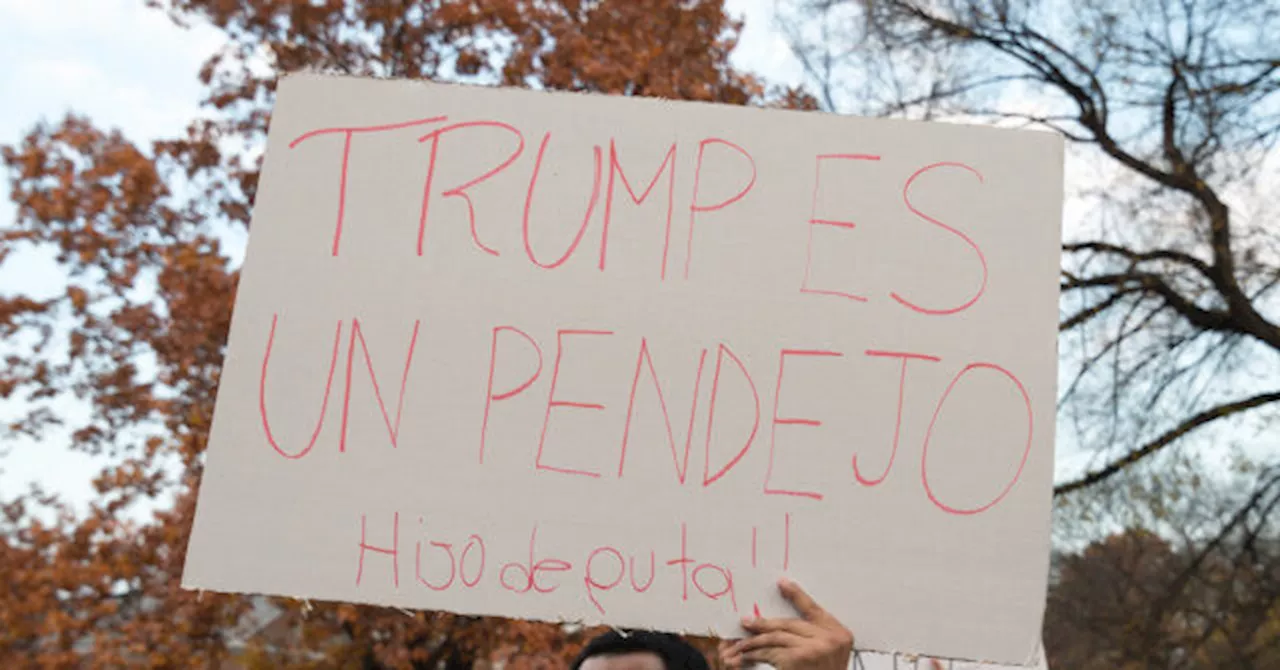 TRUMP ES
UN PENDEJO
Hijo de puta!!